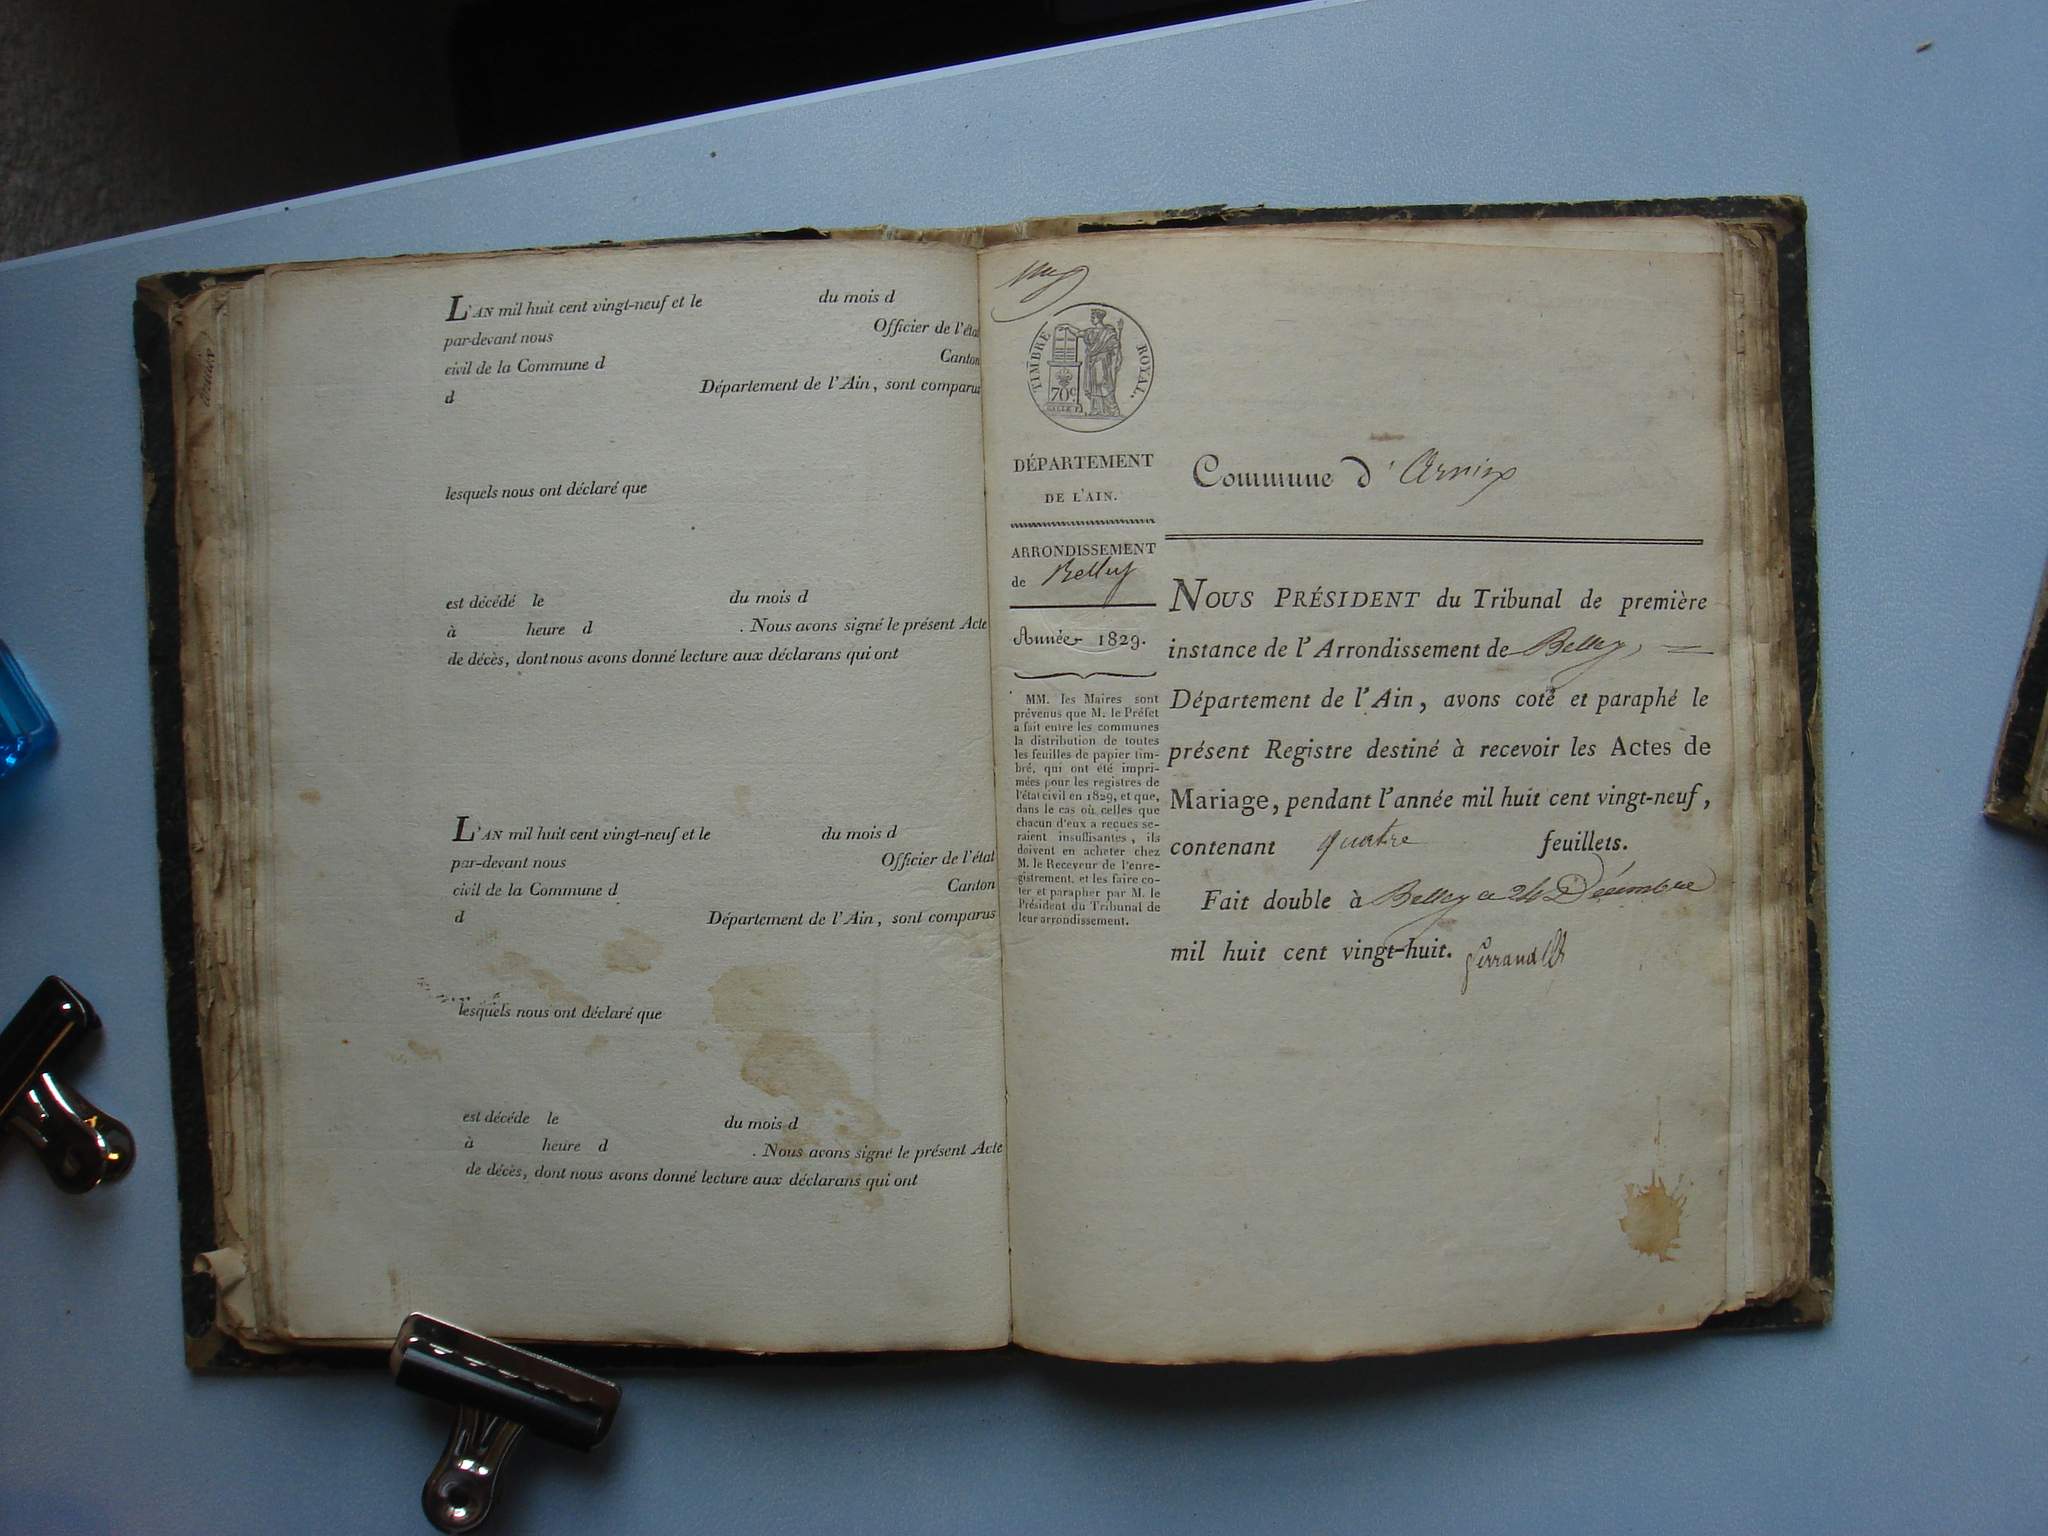 L'AN mil huit cent vingt-neuf et le du mois d
par-devant nous Officier de l'état
civil de la Commune d Canton
d Département de l'Ain, sont comparus
lesquels nous ont déclaré que
est décédé le du mois d
à heure d . Nous avons signé le présent Acte
de décès, dont nous avons donné lecture aux déclarans qui ont
L'AN mil huit cent vingt-neuf et le du mois d
par-devant nous Officier de l'état
civil de la Commune d Canton
d Département de l'Ain, sont comparus
lesquels nous ont déclaré que
est décédé le du mois d
à heure d . Nous avons signé le présent Acte
de décès, dont nous avons donné lecture aux déclarans qui ont
TIMBRE ROYAL.
70c
DÉPARTEMENT
DE L'AIN.
ARRONDISSEMENT
de Belley
Année 1829.
MM. les Maires sont
prévenus que M. le Préfet
a fait entre les communes
la distribution de toutes
les feuilles de papier tim-
bré, qui ont été impri-
mées pour les registres de
l'état civil en 1829, et que,
dans le cas où celles que
chacun d'eux a reçues se-
raient insuffisantes, ils
doivent en acheter chez
M. le Receveur de l'enre-
gistrement, et les faire co-
ter et parapher par M. le
Président du Tribunal de
leur arrondissement.
Commune d'Arnix
NOUS PRÉSIDENT du Tribunal de première
instance de l'Arrondissement de Belley,
Département de l'Ain, avons coté et paraphé le
présent Registre destiné à recevoir les Actes de
Mariage, pendant l'année mil huit cent vingt-neuf,
contenant quatre feuillets.
Fait double à Belley ce 24 Décembre
mil huit cent vingt-huit.